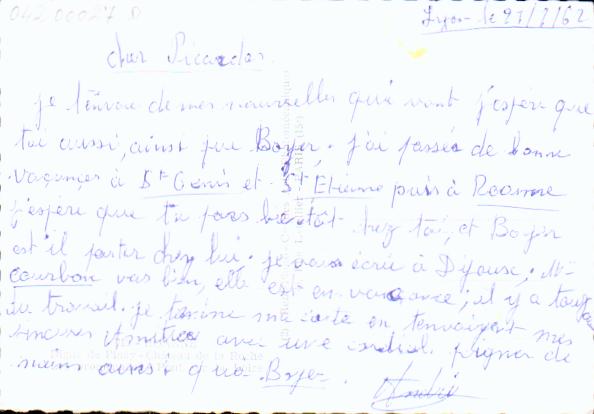 042 00027 D
Lyon le 27/7/62
cher Picardas
je t'envoie de mes nouvelles qui vont j'espère que
toi aussi, ainsi que Boyer. j'ai passée de bonne
vacances à St Genis et St Etienne puis à Roanne
j'espère que tu pars bientôt chez toi, et Boyer
est il partir chez lui. je vais écrire à Dijoux. Mme
Courbon vas bien, elle est en vacance; il y a toujours
du travail. je termine ma carte en t'envoyant mes
sincères Amitiés avec une cordial pogner de
mains ainsi que Boyer. André